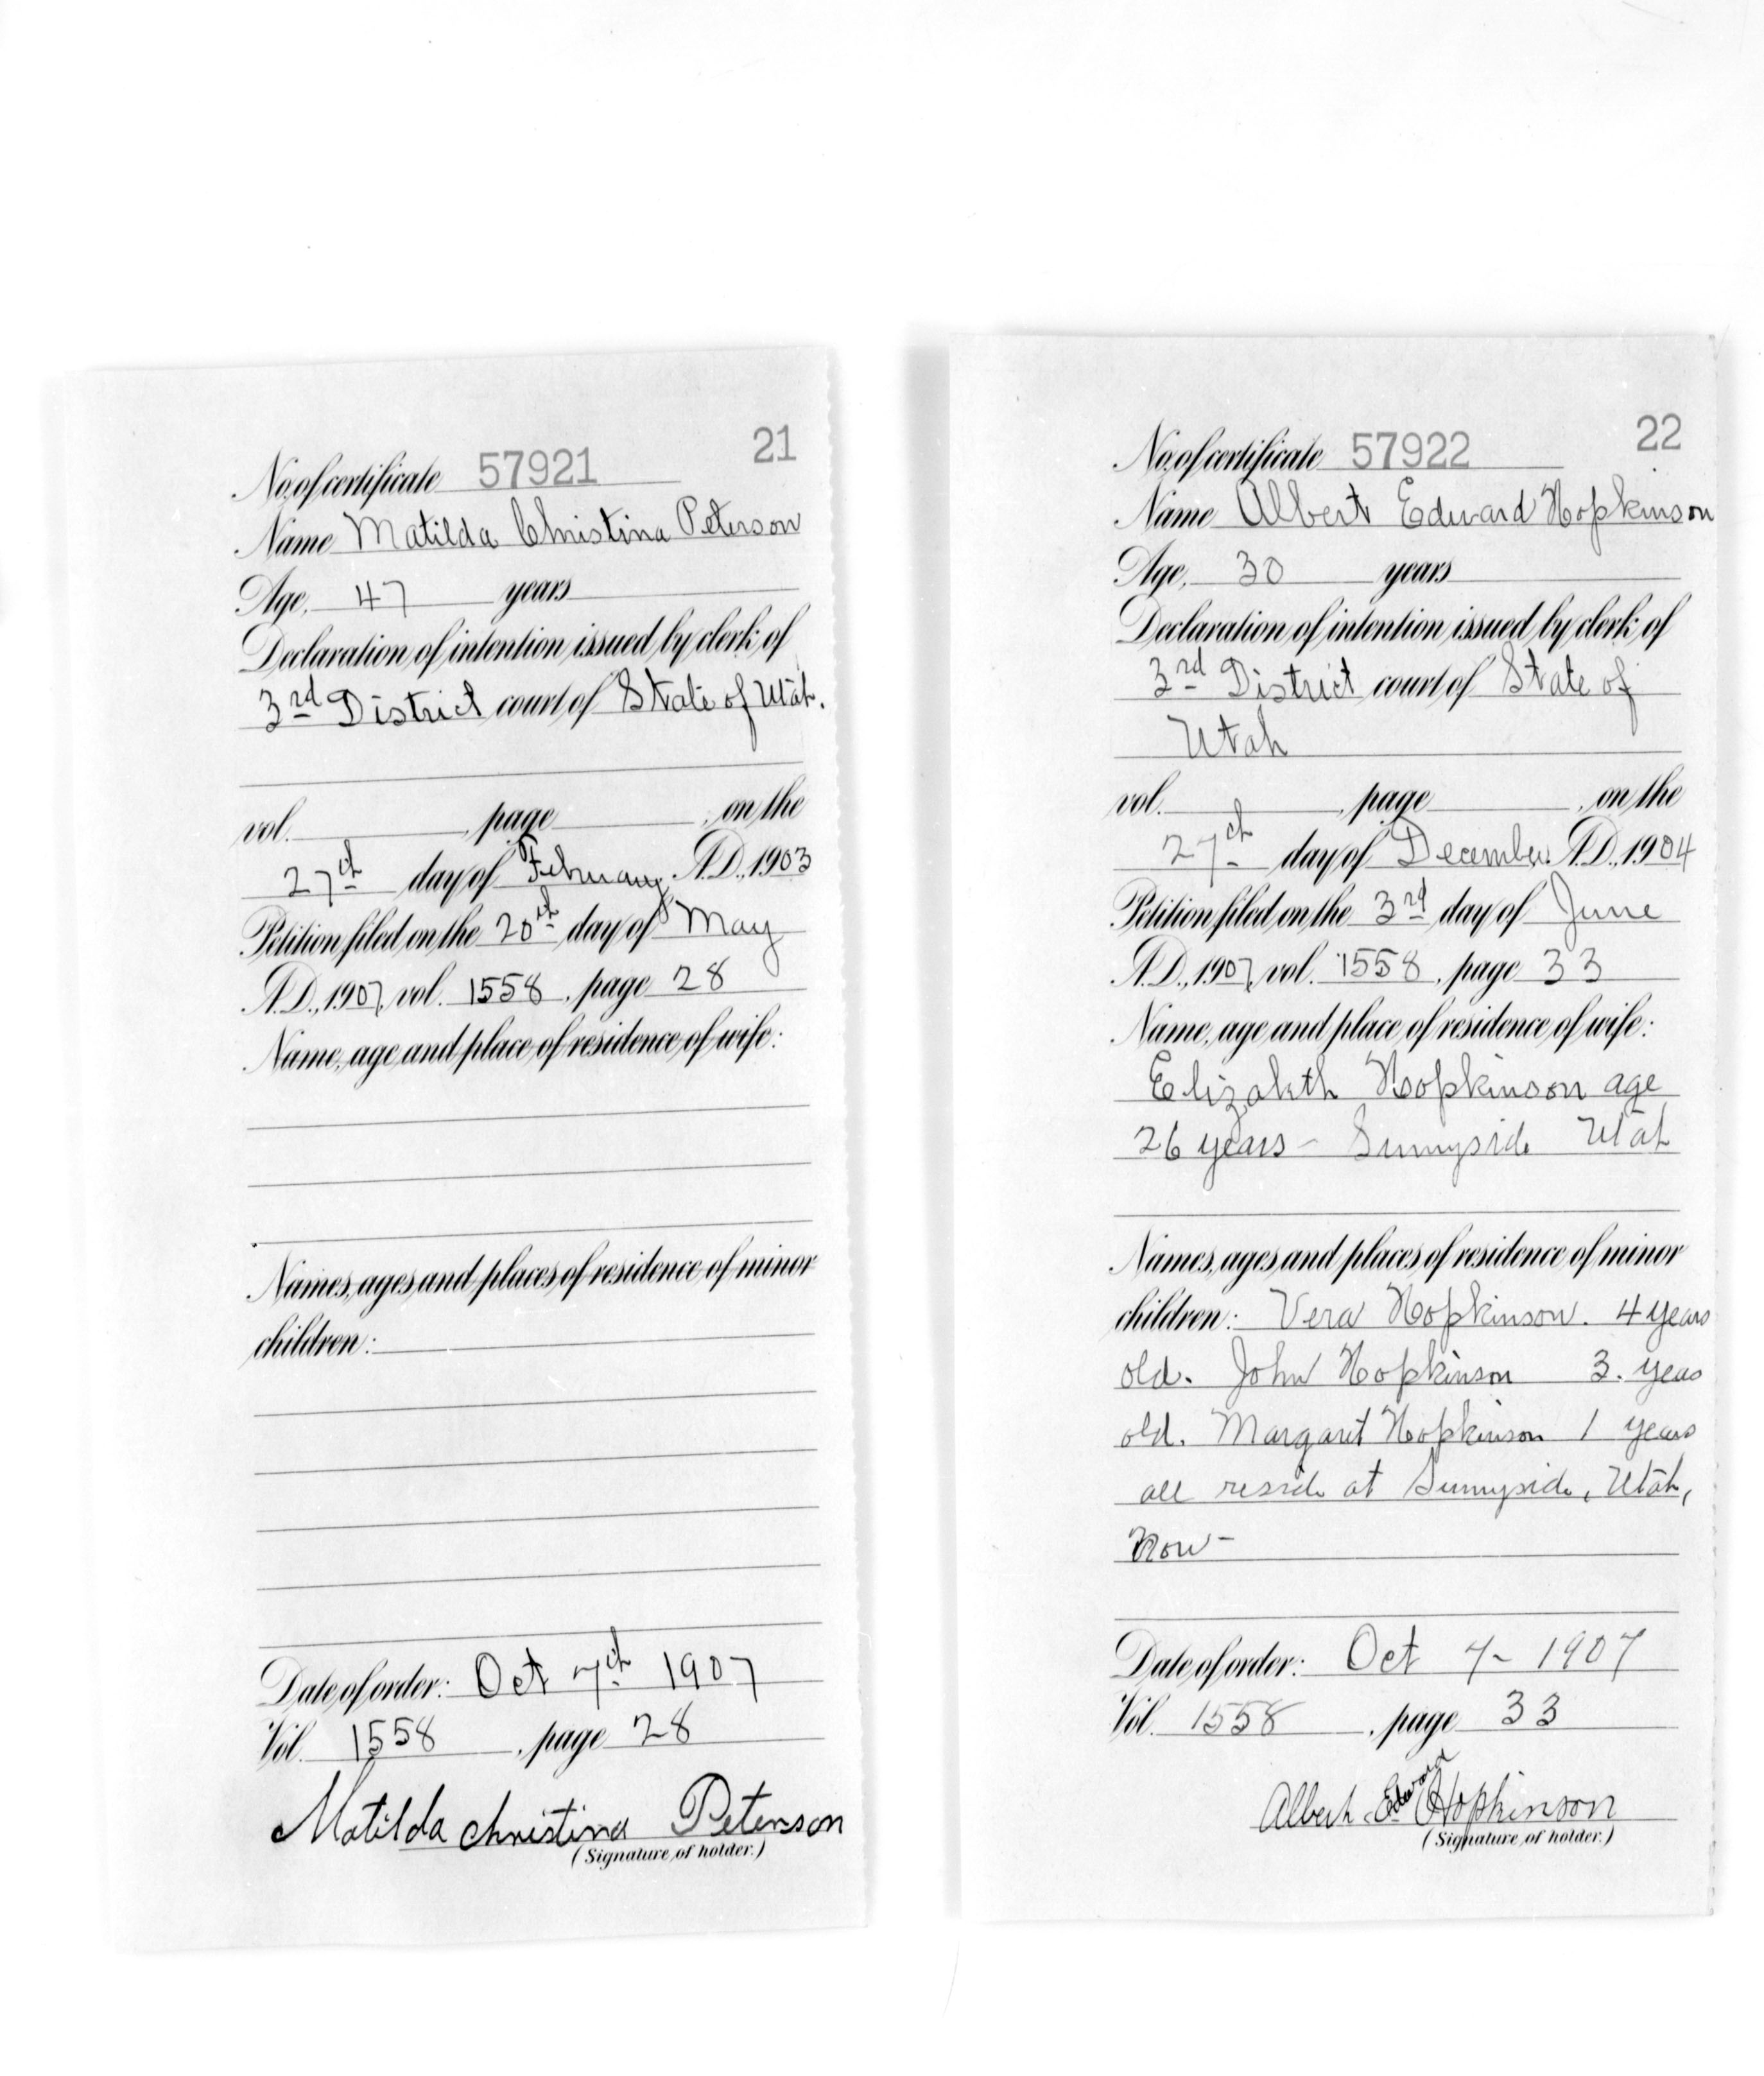 21
No. of certificate 57921
Name Matilda Christina Peterson
Age, 47 years
Declaration of intention issued by clerk of
3rd District court of State of Utah.
vol. , page , on the
27th day of February A.D., 1903
Petition filed on the 20th day of May
A.D., 1907, vol. 1558, page 28
Name, age and place of residence of wife:
Names, ages and places of residence of minor
children:
Date of order: Oct 7th 1907
Vol. 1558, page 28
Matilda Christina Peterson
(Signature of holder.)
22
No. of certificate 57922
Name Albert Edward Hopkinson
Age, 30 years
Declaration of intention issued by clerk of
3rd District court of State of
Utah
vol. , page , on the
27th day of December A.D., 1904
Petition filed on the 3rd day of June
A.D., 1907, vol. 1558, page 33
Name, age and place of residence of wife:
Elizabeth Hopkinson age
26 years - Sunnyside Utah
Names, ages and places of residence of minor
children: Vera Hopkinson. 4 years
old. John Hopkinson 3. years
old. Margaret Hopkinson 1 years
all reside at Sunnyside, Utah,
Now -
Date of order: Oct 7 - 1907
Vol. 1558, page 33
Albert Edward Hopkinson
(Signature of holder.)